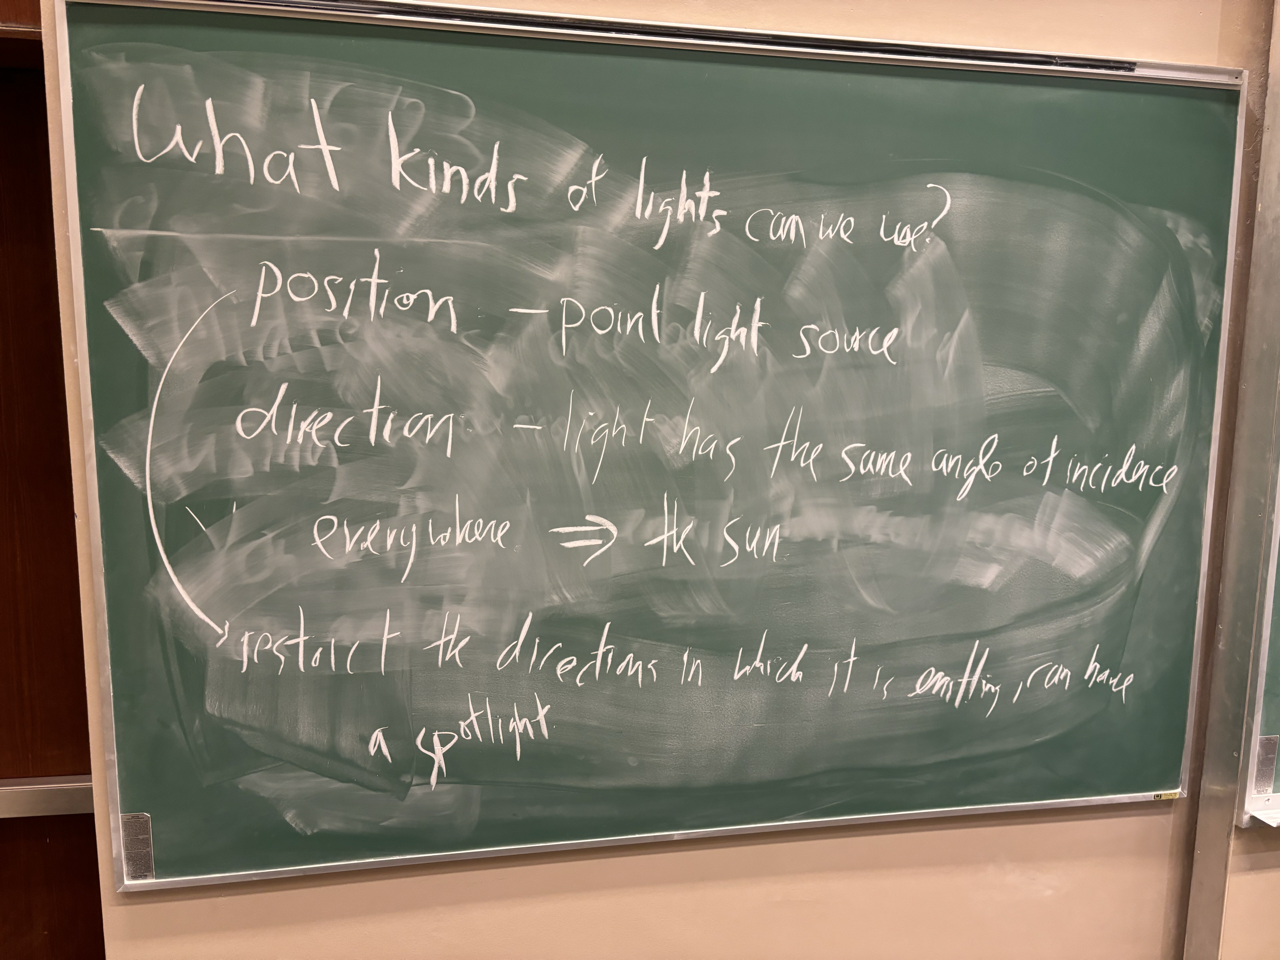 What kinds of lights can we use?
position - point light source
direction - light has the same angle of incidence
everywhere ⇒ the sun
restrict the directions in which it is emitting, can have
a spotlight